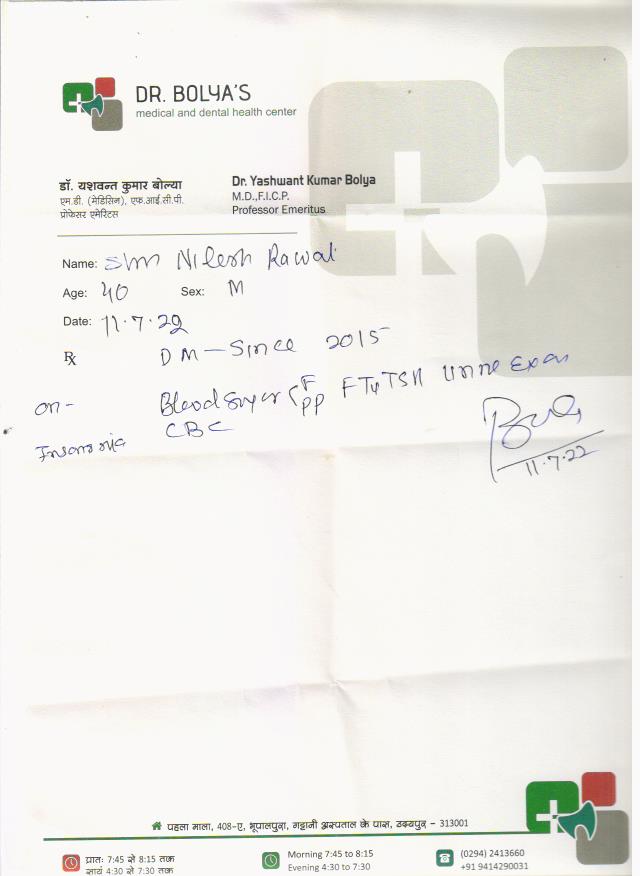 DR. BOLYA'S
medical and dental health center
डॉ. यशवन्त कुमार बोल्या
एम.डी. (मेडिसिन), एफ.आई.सी.पी.
प्रोफेसर एमेरिटस
Dr. Yashwant Kumar Bolya
M.D.,F.I.C.P.
Professor Emeritus
Name: Shri Nilesh Rawal
Age: 40 Sex: M
Date: 11.7.22
℞ DM - Since 2015
on - Blood Sugar F PP FT4 TSH Urine Exam
CBC
11.7.22
पहला माला, 408-ए, भूपालपुरा, गट्टानी अस्पताल के पास, उदयपुर - 313001
प्रातः 7:45 से 8:15 तक
सायं 4:30 से 7:30 तक
Morning 7:45 to 8:15
Evening 4:30 to 7:30
(0294) 2413660
+91 9414290031